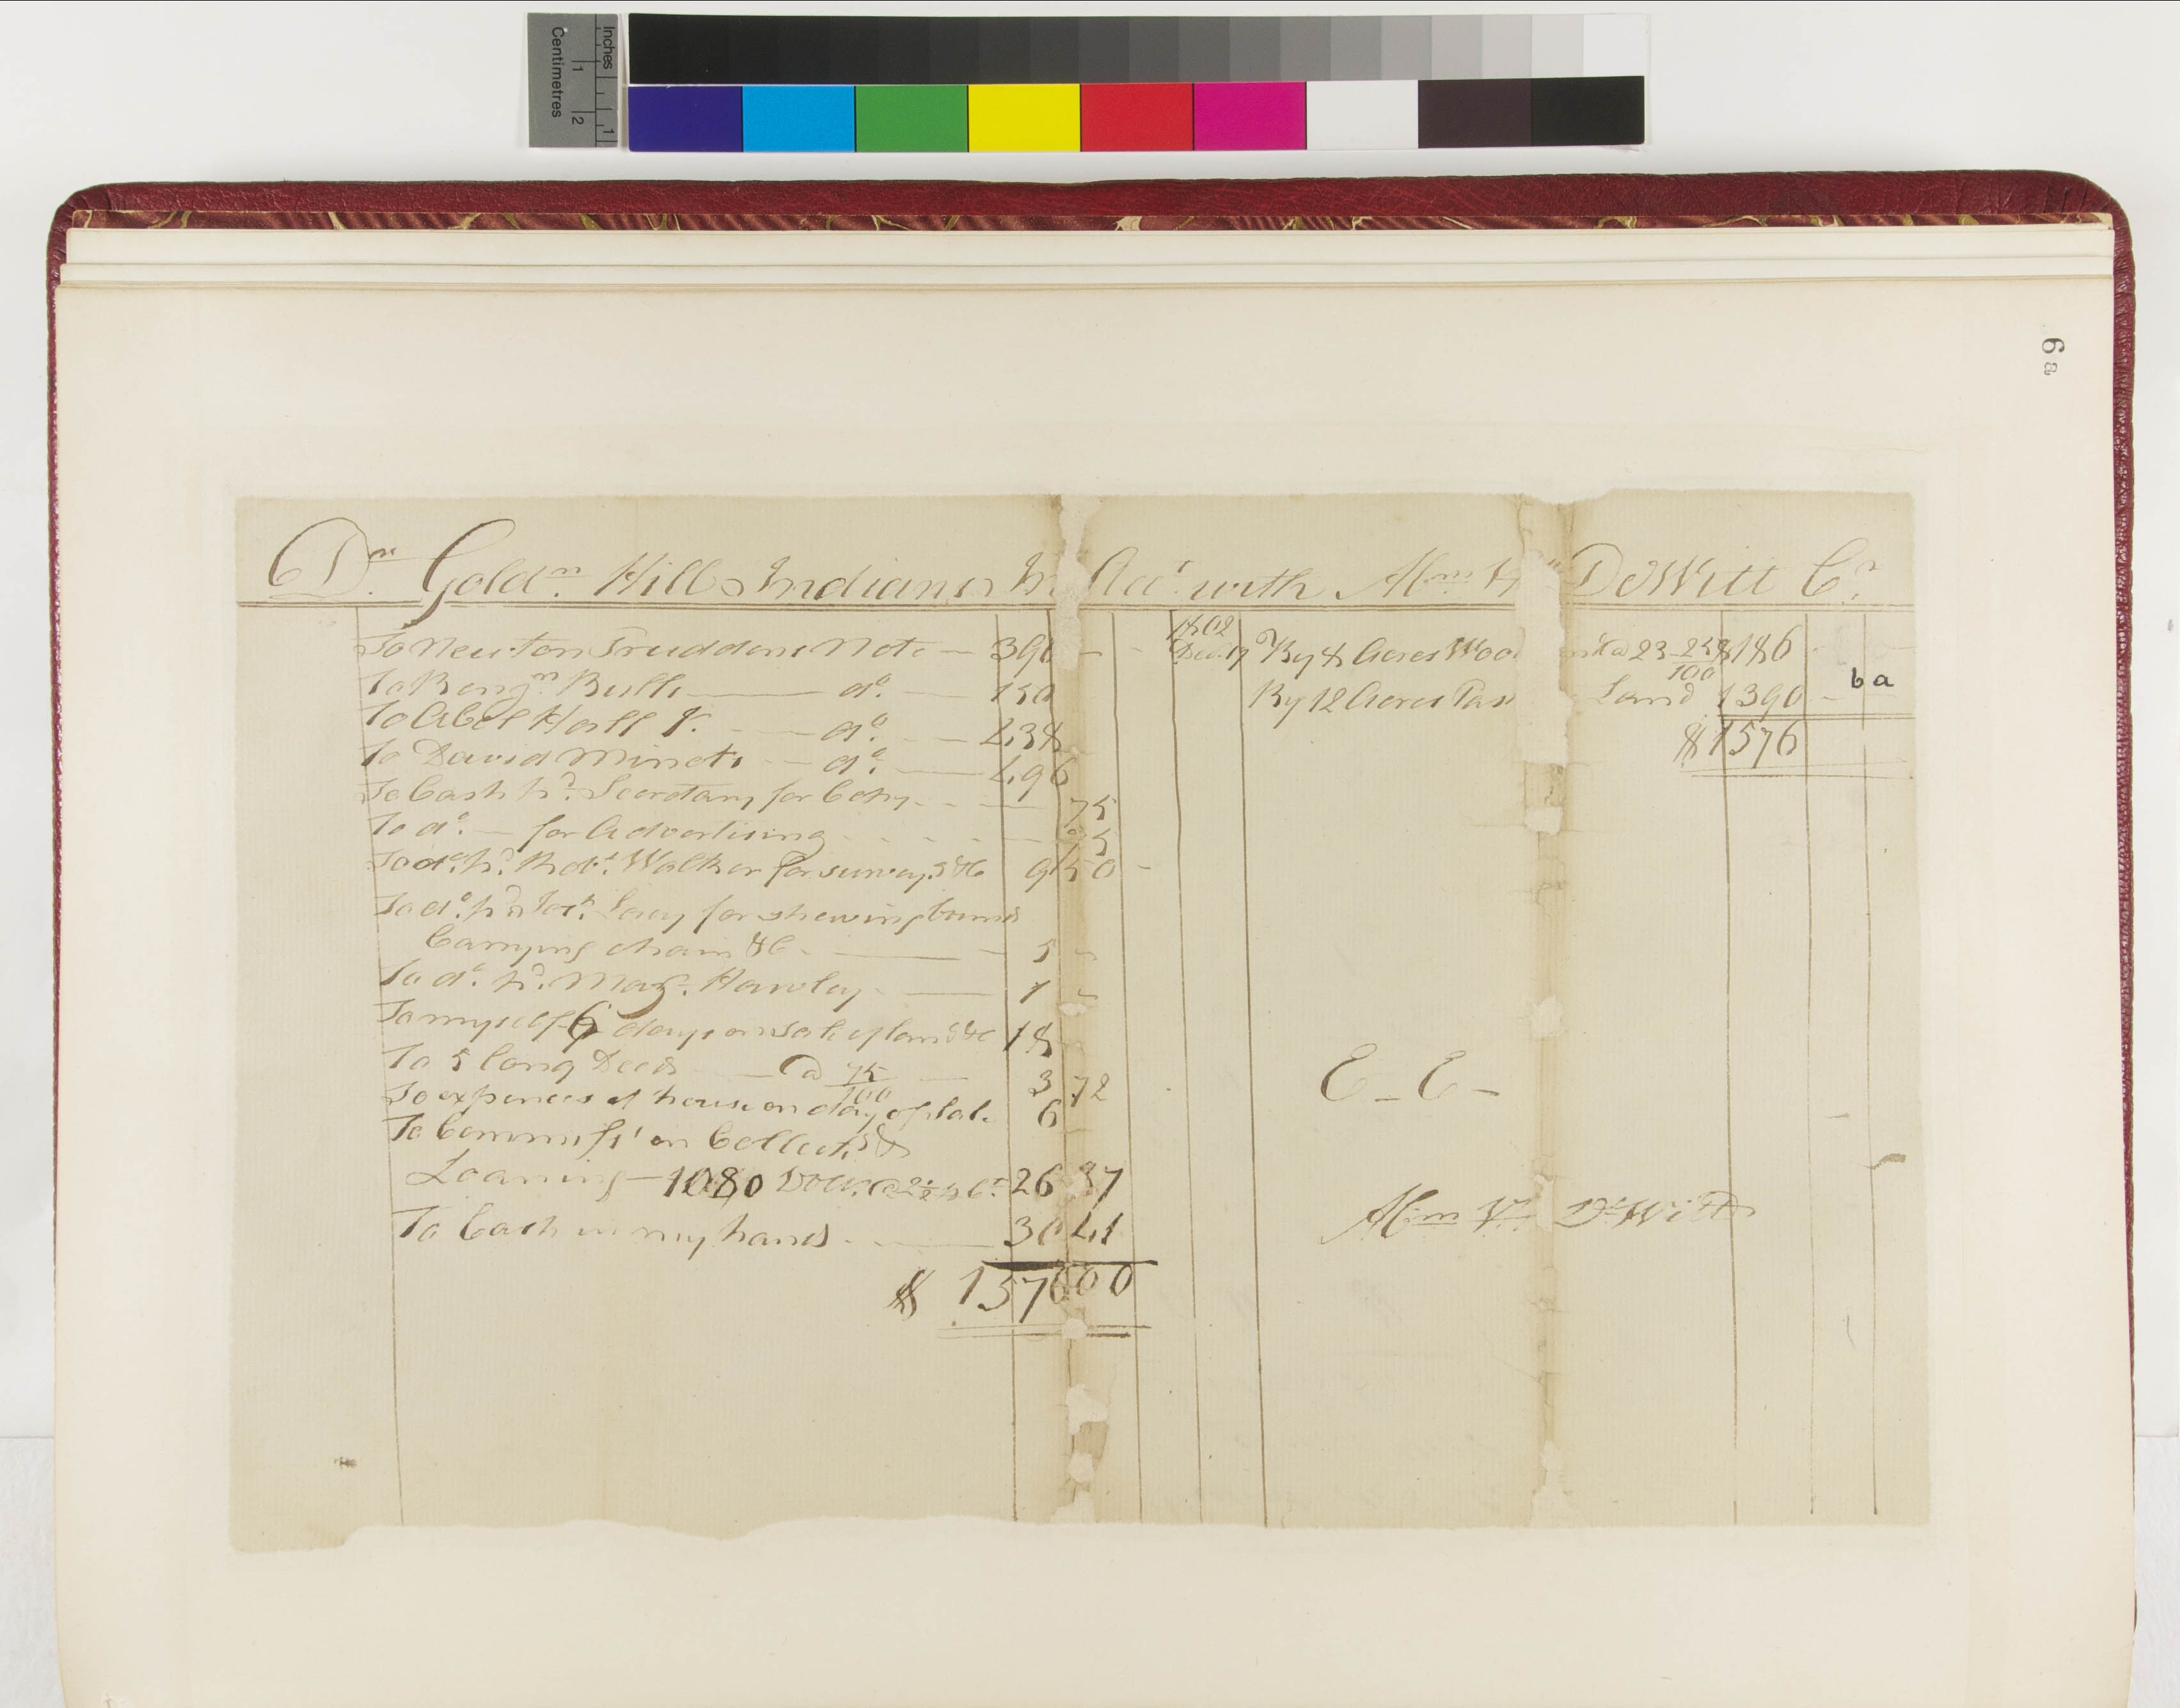 Inches
Centimetres
1
2
1
6a
Dr Goldn Hill Indians in Acct with Abm V DeWitt Cr
To Newton Pruddens Note — 390 —
To Benjn Bulls — do — 150
To Abel Hall Jr — do — 438
To David Minots — do — 496
To Cash pd Secretary for Copy — 75
To do — for Advertising 25
To do pd Robt Walker for survey &c 9 50 —
To do pd for shewing bounds
Carrying chain &c — 5 —
To do pd Majr Hawley — 1 —
To myself 6 days on sale of land &c 18
To 5 long Deeds — @ 75/100 3 72
To expences at house on day of sale 6
To Commiss on Collects &
Loaning — 1080 Dolls @ 2½ p Ct 26 37
To Cash in my hands — 30 41
$ 1576 00
1802
Decr 17 By 8 Acres Wood @ 23 25/100 $186
By 12 Acres Pas Land 1390 —
$1576
6a
E — E —
Abm V. DeWitt